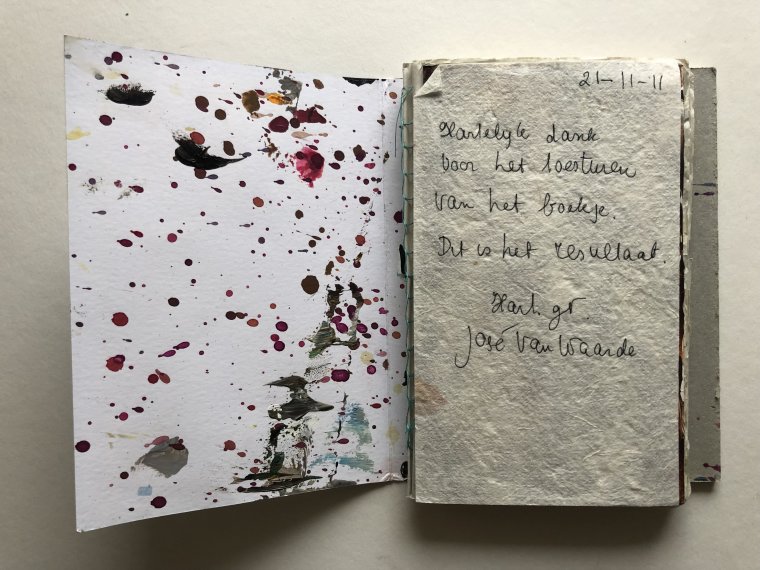 21-11-11
Hartelijk dank
voor het toesturen
van het boekje.
Dit is het resultaat.
Hart. gr.
José van Waarde